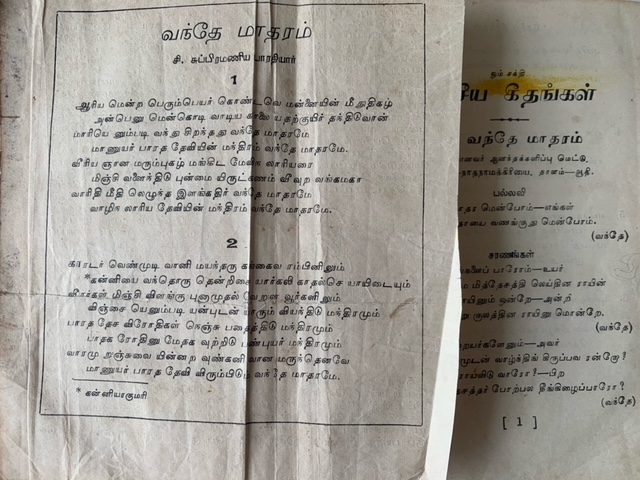 வந்தே மாதரம்
சி. சுப்பிரமணிய பாரதியார்
1
ஆரிய மென்ற பெரும்பெயர் கொண்டவெ மன்னையின் மீதுதிகழ்
அன்பெனு மென்கொடி வாடிய காலை யதற்குயிர் தந்திடுவான்
மாரியெ னும்படி வந்து சிறந்தது வந்தே மாதரமே
மாணுயர் பாரத தேவியின் மந்திரம் வந்தே மாதரமே.
வீரிய ஞான மரும்புகழ் மங்கிட மேவிந லாரியரை
மிஞ்சி வளைந்திடு புன்மை யிருட்கணம் வீவுற வங்கமகா
வாரிதி மீதி லெழுந்த இளங்கதிர் வந்தே மாதரமே
வாழிந லாரிய தேவியின் மந்திரம் வந்தே மாதரமே.
2
காரடர் வெண்முடி வானி மயந்தரு கங்கைவ ரம்பினிலும்
*கன்னியை வந்தொரு தென்றிசை யார்கலி காதல்செ யாயிடையும்
வீரர்கள் மிஞ்சி விளங்கு புனாமுதல் வேறுள வூர்களினும்
விஞ்சை யெனும்படி யன்புடன் யாரும் வியந்திடு மந்திரமும்
பாரத தேச விரோதிகள் நெஞ்சு பதைத்திடு மந்திரமும்
பாதக ரோதினு மேதக வுற்றிடு பண்புயர் மந்திரமும்
வாரமு றுஞ்சுவை யின்னற வுண்கனி வான மருந்தெனவே
மாணுயர் பாரத தேவி விரும்பிடும் வந்தே மாதரமே.
* கன்னியாகுமரி
ஓம் சக்தி
கீதங்கள்
வந்தே மாதரம்
ஆனந்தக்களிப்பு மெட்டு.
நாதநாமக்கிரியை, தாளம்—ஆதி.
பல்லவி
மென்போம்—எங்கள்
வணங்குது மென்போம்.
(வந்தே)
சரணங்கள்
பாரோம்—உயர்
மித்தேசத்தி லெய்தின ராயின்
ஒன்றே—அன்றி
குலத்தின ராயினு மொன்றே.
(வந்தே)
அவர்
வாழ்ந்திங் கிருப்பவ ரன்றோ?
பிற
போற்பல தீங்கிழைப்பாரோ?
(வந்தே)
[ 1 ]